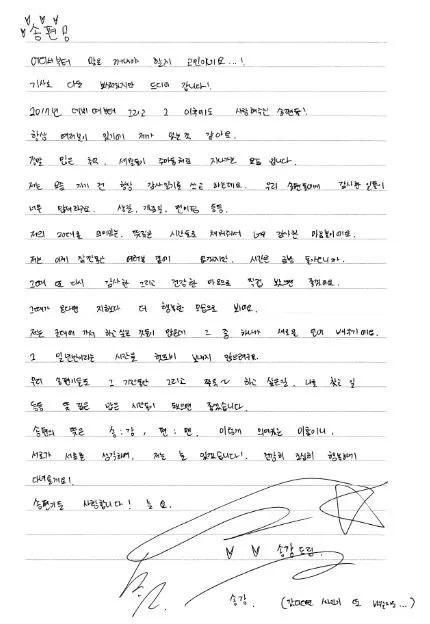 송편에
어디서부터 말을 꺼내야 할지 고민이네요...!
기사로 다들 보셨겠지만 드디어 갑니다!
2017년 데뷔 때부터 그리고 그 이후에도 사랑해주신 송편들!
항상 여러분이 있기에 제가 있는 것 같아요.
정말 많은 추억, 세월들이 주마등처럼 지나가는 요즘 입니다.
저는 요즘 자기 전 항상 감사일기를 쓰고 자는데요. 우리 송편들에게 감사한 일들이
너무 많더라구요. 생일, 팬미팅 등등.
저의 20대를 의미있는, 뜻깊은 시간들로 채워주셔서 너무 감사한 마음뿐이에요.
저는 이제 잠깐동안 여러분 곁에 없겠지만, 시간은 금방 돌아오니까.
그때 또 다시 감사한 그리고 건강한 마음으로 직접 봤으면 좋겠어요.
그때가 온다면 지금보다 더 행복한 모습으로 봐요.
저는 군대에 가서 하고 싶은 것들이 많은데 그 중 하나가 새로운 언어 배우기예요.
그 일년반이라는 시간을 헛되이 보내지 않으려구요.
우리 송편들도 그 기간동안 그리고 쭉~ 하고 싶은일, 나를 찾는 일
등등 뜻 깊은 많은 시간들이 됐으면 좋겠습니다.
송편의 뜻은 송:강, 편:편. 이렇게 의미있는 이름이니,
서로가 서로를 생각하며, 저는 늘 있겠습니다! 건강히 조심히 행복하게
다녀올게요!
송편들 사랑합니다! 늘 요.
송강 드림.
송강. (군대에선 싸인이 또 바뀔지도...)